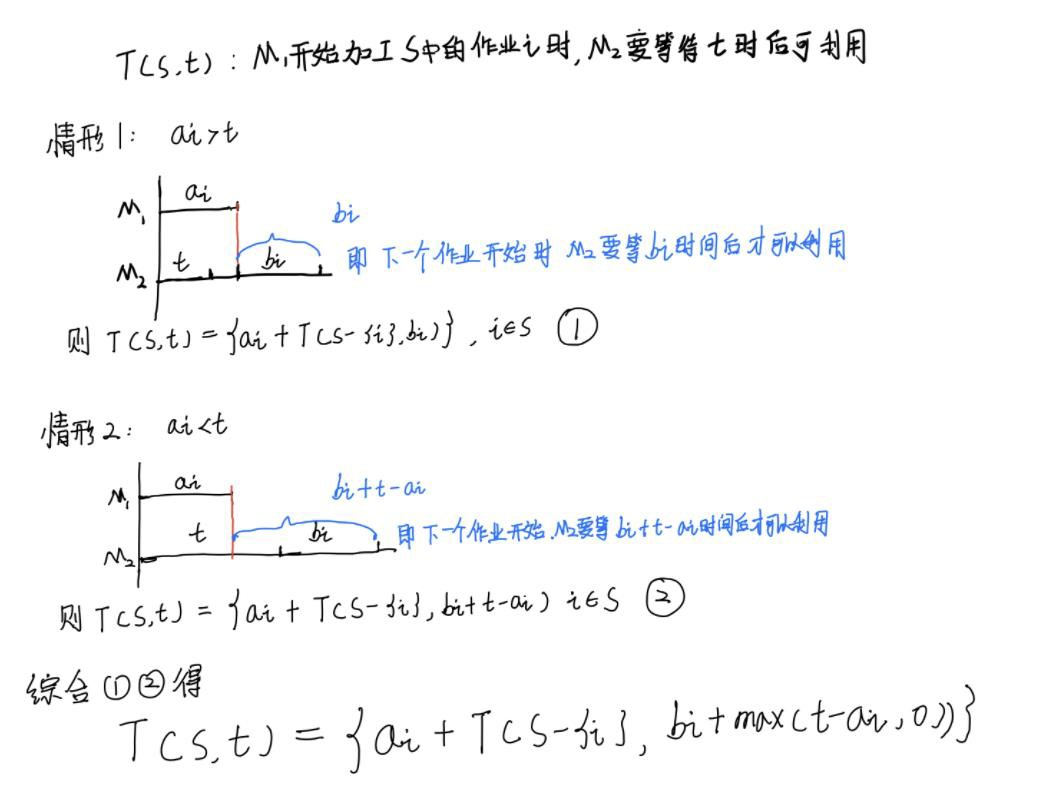 T(S,t) : M₁开始加工S中的作业i时, M₂要等待t时后可利用
情形1: ai>t
ai
M₁
bi
t
bi
即 下一个作业开始时 M₂要等bi时间后才可以利用
M₂
则 T(S,t) = {ai + T(S-{i},bi)} , i∈S ①
情形2: ai<t
ai
M₁
bi+t-ai
t
bi
即下一个作业开始.M₂要等bi+t-ai时间后才可以利用
M₂
则 T(S,t) = {ai + T(S-{i}, bi+t-ai) i∈S ②
综合①②得
T(S,t) = {ai + T(S-{i}, bi+max(t-ai,0))}